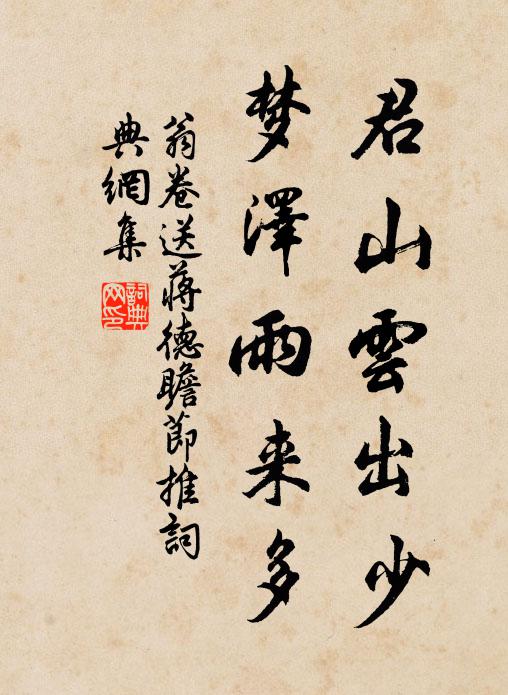 君山雲出少
梦澤雨来多
翁卷送蒋德瞻節推詞
典網集
詞典网印